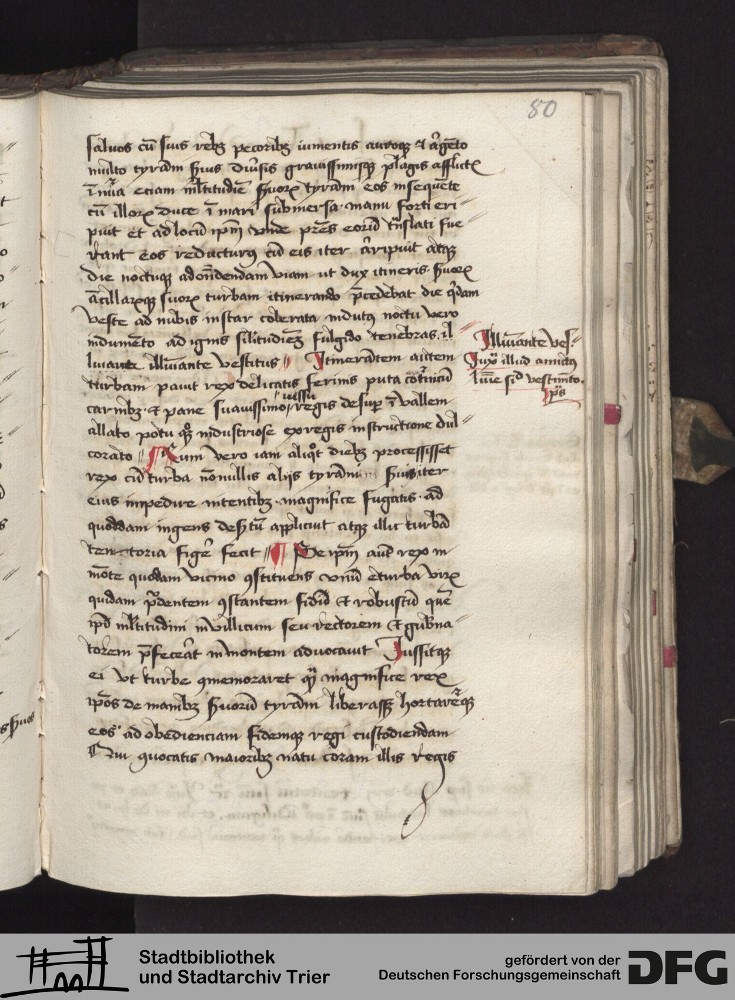 80
saluos cū suis rebꝫ pecoribꝫ iumentis auroqꝫ et argēto
multo tyrāni diūsis grauissimisqꝫ plagis afflictꝭ
eciam mltitudinē tyrāni eos insequēte
cū illoꝝ duce ī mari submersa manu forti eri-
puit Et ad locū ipm vnde pr̄es eorū tn̄slati fue-
rant eos reducturꝰ cū eis iter arripuit atqꝫ
die noctuqꝫ ad ondendam viam ut dux itineris
ācillaꝝqꝫ suoꝝ turbam itinerando p̄cedebat die qͥdam
veste ad nubis instar indutꝰ noctu vero
indumēto ad ignis silitudinē fulgido tenebras il-
luminante vestitus Itinerātem autem
turbam pauit rex delicatis ferinis puta cotͥnicū
carnibꝫ et pane suauissimo iussu regis desup ī vallem
allato potu qꝫ industriose ex regis instructione dul-
corato Cum vero iam aliqͦt diebꝫ processisset
rex cū turba nōnullis alijs tyrānis iter
eius impedire nitentibꝫ magnifice fugatis ad
quoddam ingens desertū applicuit atqꝫ illic turbā
tentoria figē fecit Se ipm aut rex in
mōte quodam vicino ꝯstituens vnū e turba viꝝ
quidam prudentem ꝯstantem fidū et robustū quē
ipī mltitudini in villicum seu rectorem et gub̄na-
torem p̄fecerat in montem aduocauit Jussitqꝫ
ei vt turbe ꝯmemoraret qͣm magnifice rex
ipos de manibꝫ tyrāni liberasset hortaretͬqꝫ
eos ad obedienciam fidemqꝫ regi custodiendam
Qui ꝯuocatis maioribꝫ natu coram illis regis
Illuminante ves-
illud amictꝰ
lumine sicut vestimēto
ps
Stadtbibliothek
und Stadtarchiv Trier
gefördert von der
Deutschen Forschungsgemeinschaft
DFG